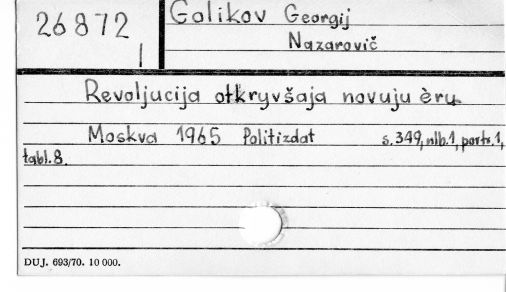 26872
Golikov Georgij
1
Nazarovič
Revoljucija otkryvšaja novuju èru
Moskva 1965 Politizdat s.349, nlb.1, portr.1,
tabl.8.
DUJ. 693/70. 10 000.